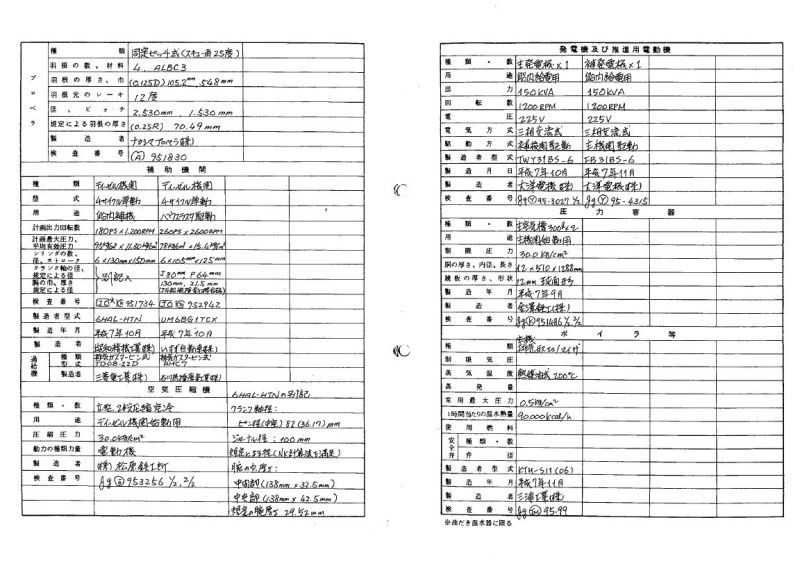 プロペラ
種類 固定ピッチ式(スキュー角25度)
羽根の数、材料 4. ALBC3
羽根の厚さ、巾 (0.125D) 105.2mm, 548mm
羽根元のレーキ 12度
径、ピッチ 2,530mm, 1,530mm
規定による羽根の厚さ (0.25R) 70.49mm
製造者 ナカシマプロペラ(株)
検査番号 (A) 951830
補助機関
種類 ディーゼル機関 ディーゼル機関
型式 4サイクル単動 4サイクル単動
用途 船内補機
計画出力回転数 180PS×1,200RPM 260PS×2600RPM
計画最大圧力、平均有効圧力
シリンダの数、径、ストローク 6×130mm×150mm 6×105mm×125mm
クランク軸の径、規定による径 別記× J80mm P64mm
腕の巾、厚さ、規定による径 130mm, 21.5mm
検査番号 951734 952942
製造者型式 6HAL-HTN UM6BG1TCX
製造年月 平成7年10月 平成7年10月
製造者 いすゞ自動車(株)
過給機
種類 排気ガスタービン式 排気ガスタービン式
型式 TD08-22D RHC7
製造者 三菱重工業(株) 石川島播磨重工業(株)
空気圧縮機
6HAL-HTNの別記
種類・数 クランク軸径:
用途 ディーゼル機関始動用 ピン径(中空) 82(36.17)mm
圧縮圧力 30.0kg/cm² ジャーナル径: 100mm
動力の種類力量 電動機 規定による径(NK計算法を満足)
製造者 (株)松原鉄工所 腕の巾厚さ:
検査番号 953256 ½,2/2 中間部(138mm×32.5mm)
中央部(138mm×42.5mm)
規定の腕厚さ 29.52mm
発電機及び推進用電動機
種類・数 主発電機×1 補発電機×1
用途 船内給電用 船内給電用
出力 150KVA 150KVA
回転数 1200RPM 1200RPM
電圧 225V 225V
電気方式 三相交流式 三相交流式
駆動方式 補機関駆動 主機関駆動
製造者型式 TWY31BS-6 FB31BS-6
製造月日 平成7年10月 平成7年11月
製造者 大洋電機(株) 大洋電機(株)
検査番号 95-3027 ½ 95-4315
圧力容器
種類・数 主空気槽 300ℓ×2
用途 主機関始動用
制限圧力 30.0kg/cm²
胴の厚さ、内径、長さ 12×510×1288mm
鏡板の厚さ、形状 12mm 球面形
製造年月 平成7年9月
製造者
検査番号 951686 ½,2/2
ボイラ等
種類
制限気圧
蒸気温度 熱媒油式 200℃
蒸発量
常用最大圧力 0.5kg/cm²
1時間当たりの温水熱量 90,000kcal/h
使用燃料
安全弁
種類・数
弁径
製造者型式 KTM-S11(06)
製造年月 平成7年11月
製造者 三浦工業(株)
検査番号 95-99
※油だき温水器に限る